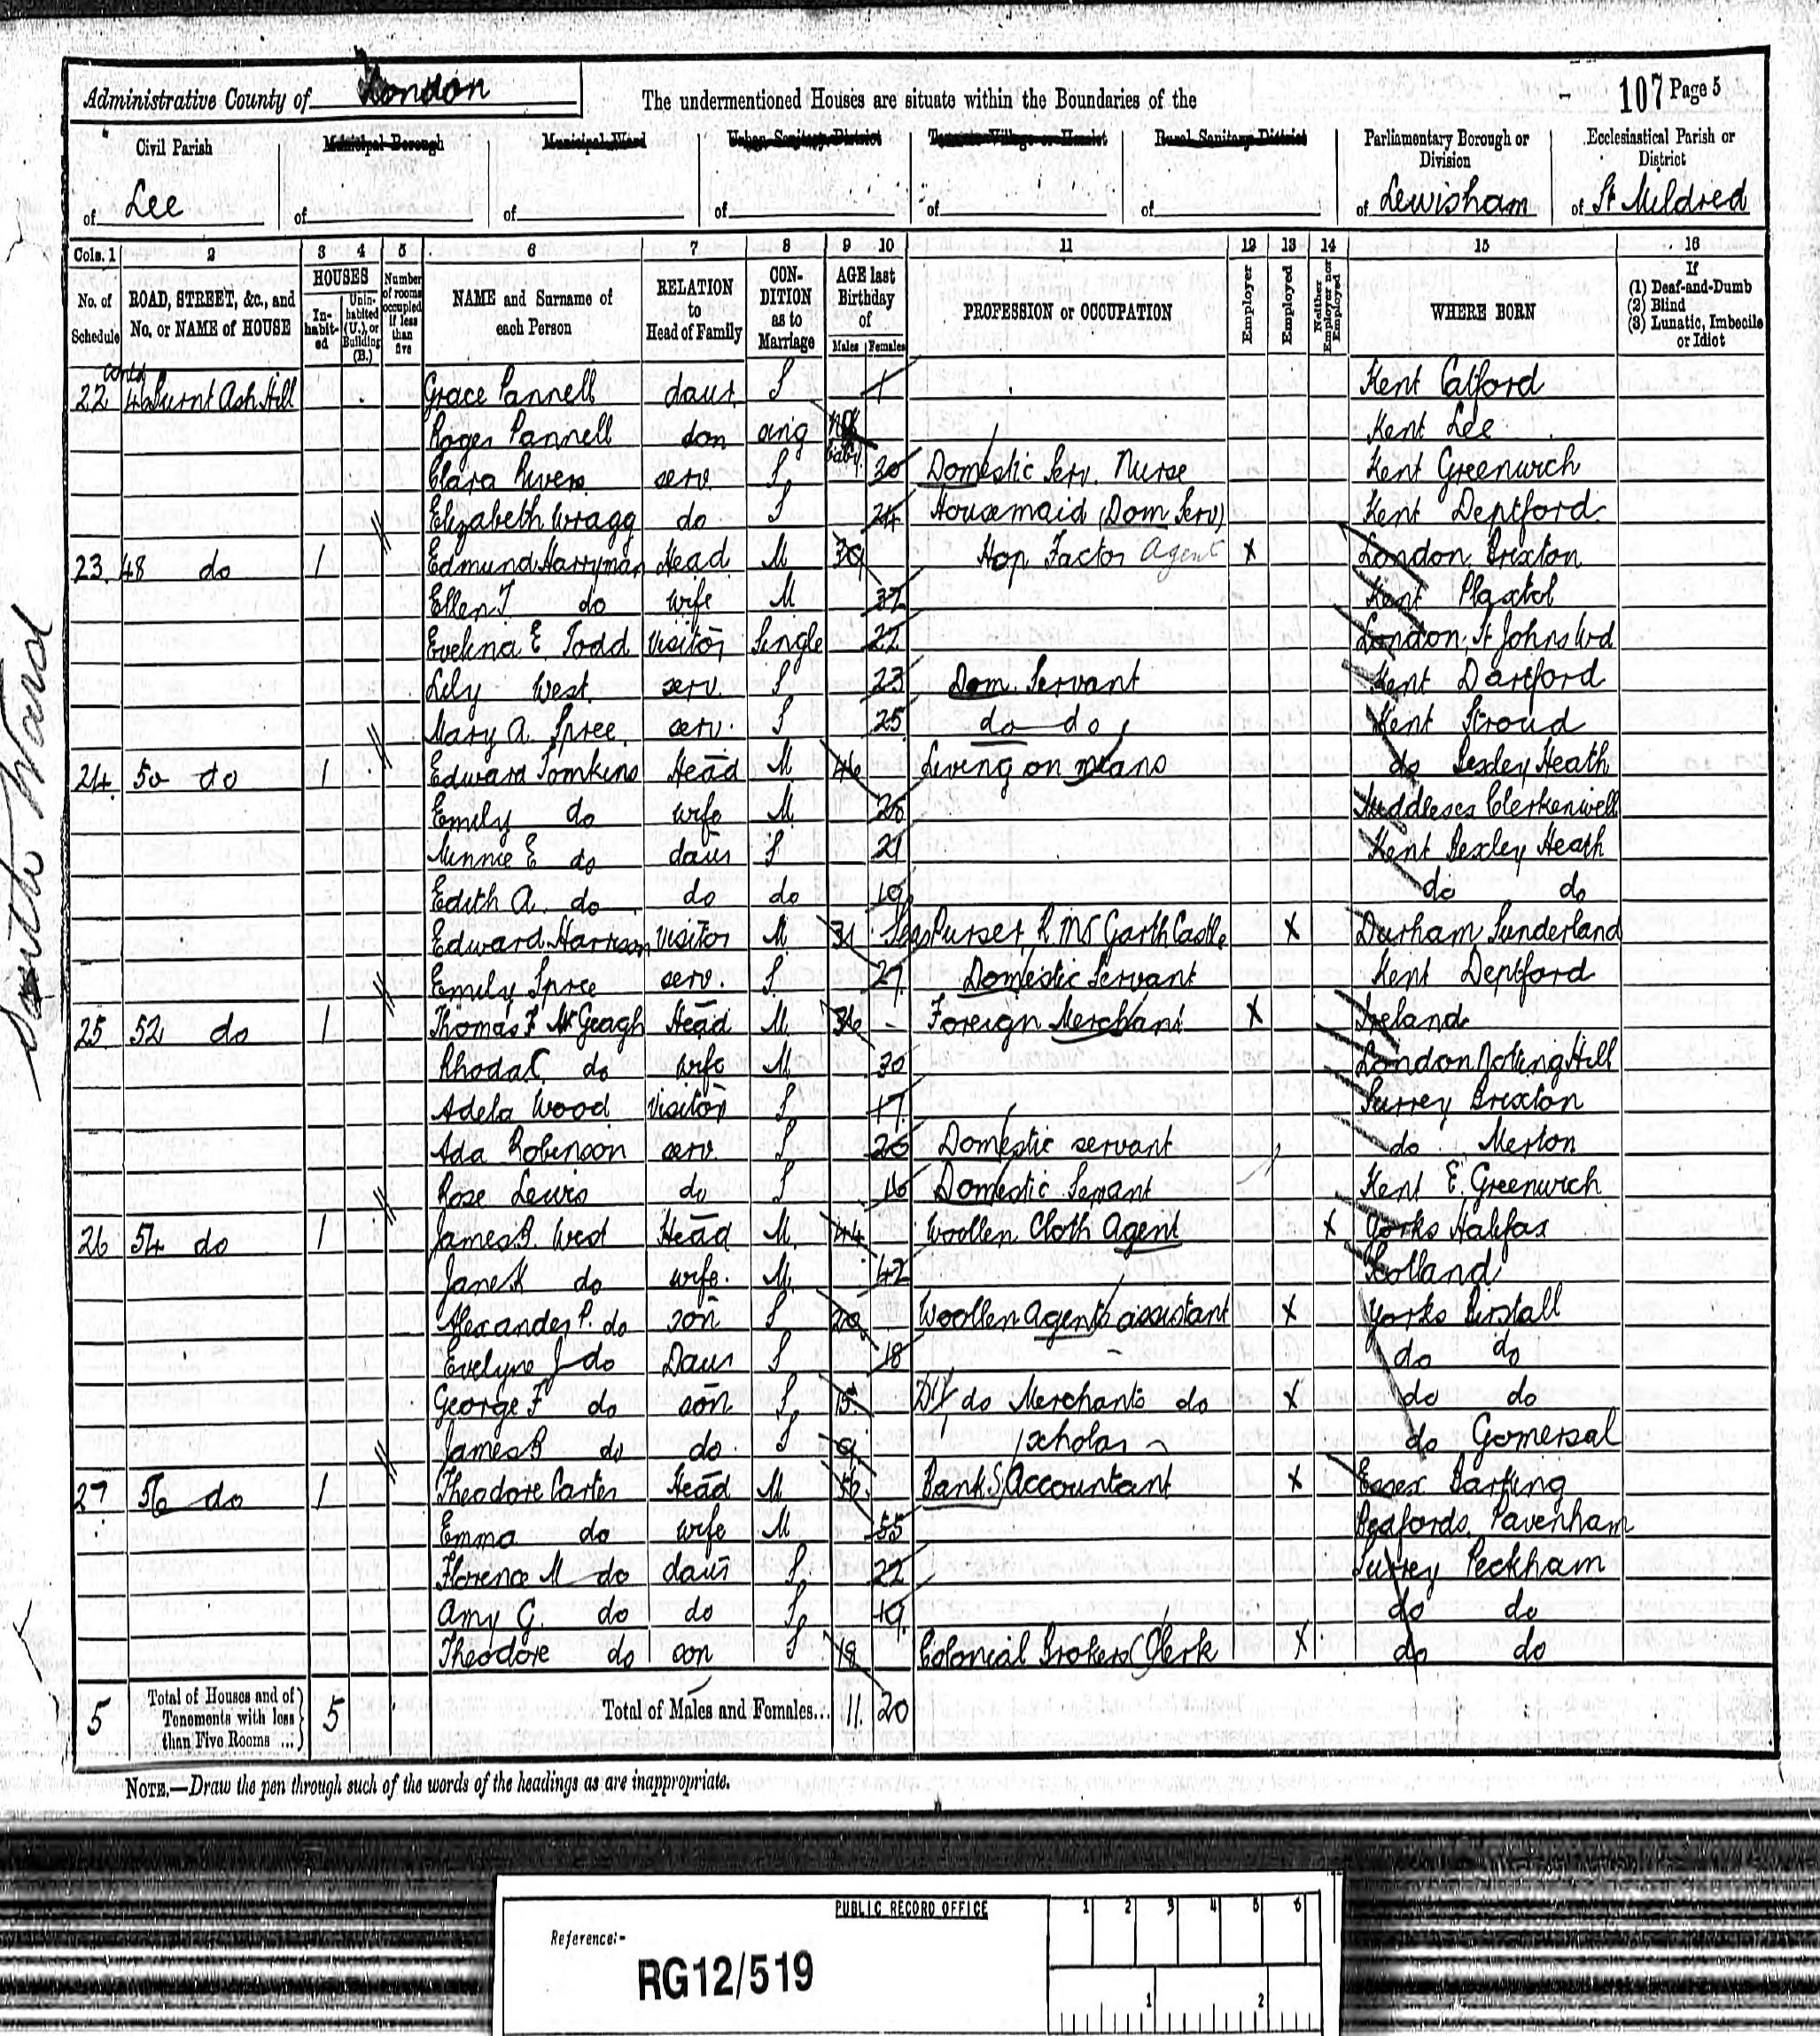 Administrative County of London
The undermentioned Houses are situate within the Boundaries of the
107 Page 5
Civil Parish of Lee
Municipal Borough of
Municipal Ward of
Urban Sanitary District of
Town or Village or Hamlet of
Rural Sanitary District of
Parliamentary Borough or Division of Lewisham
Ecclesiastical Parish or District of St Mildred
Cols. 1 2 3 4 5 6 7 8 9 10 11 12 13 14 15 16
No. of Schedule
ROAD, STREET, &c., and No. or NAME of HOUSE
HOUSES
In-habit-ed
Unin-habited (U.), or Building (B.)
Number of rooms occupied if less than five
NAME and Surname of each Person
RELATION to Head of Family
CON-DITION as to Marriage
AGE last Birthday of
Males Females
PROFESSION or OCCUPATION
Employer
Employed
Neither Employer nor Employed
WHERE BORN
If
(1) Deaf-and-Dumb
(2) Blind
(3) Lunatic, Imbecile or Idiot
contd
22 Burnt Ash Hill Grace Pannell daur S 1 Kent Catford
Roger Pannell Kent Lee
Clara Rivers serv. S 30 Domestic Serv. Nurse Kent Greenwich
Elizabeth Wragg do S 24 Housemaid (Dom Serv) Kent Deptford
23 48 do 1 Edmund Harryman Head M 39 Hop Factor Agent X London, Brixton
Ellen T do wife M 37 Kent Plaxtol
Evelina E Todd Visitor Single 22 London, St Johns Wd
Lily West serv. S 23 Dom. Servant Kent Dartford
Mary A. Spree serv. S 25 do do Kent Stroud
24 50 do 1 Edward Tomkins Head M 46 Living on means do Bexley Heath
Emily do wife M Middlesex Clerkenwell
Minnie E do daur S 21 Kent Bexley Heath
Edith A. do do do 19 do do
Edward Harrison Visitor M 31 Purser R M S Garth Castle X Durham Sunderland
Emily Spree serv. S 27 Domestic Servant Kent Deptford
25 52 do 1 Thomas F McGeagh Head M 36 Foreign Merchant X Ireland
Rhoda C. do wife M 30 London Notting Hill
Adela Wood Visitor S 17 Surrey Brixton
Ada Robinson serv. S 20 Domestic servant do Merton
Rose Lewis do S 16 Domestic Servant Kent E. Greenwich
26 54 do 1 James B. West Head M 44 Woollen Cloth Agent X Yorks Halifax
Jane K do wife M 42 Scotland
Alexander P. do son S 20 Woollen Agents assistant X Yorks Birstall
Evelyne J do Daur S 18 do do
George F do son S 15 do Merchants do X do do
James B do do S 9 scholar do Gomersal
27 56 do 1 Theodore Carter Head M Banks Accountant X Essex Barking
Emma do wife M 55 Bedfords. Pavenham
Florence M do daur S 22 Surrey Peckham
Amy G. do do S 19 do do
Theodore do son S 18 Colonial Brokers Clerk X do do
5 Total of Houses and of Tenements with less than Five Rooms ... 5 Total of Males and Females... 11 20
NOTE.—Draw the pen through such of the words of the headings as are inappropriate.
South Ward
PUBLIC RECORD OFFICE
1 2 3 4 5 6
Reference:-
RG12/519
1 2